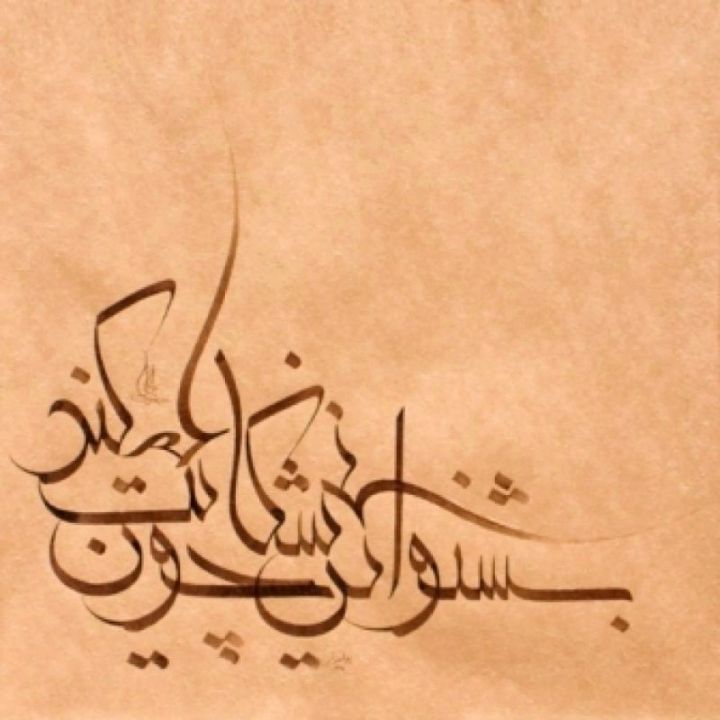 بشنو این نی چون شکایت میکند